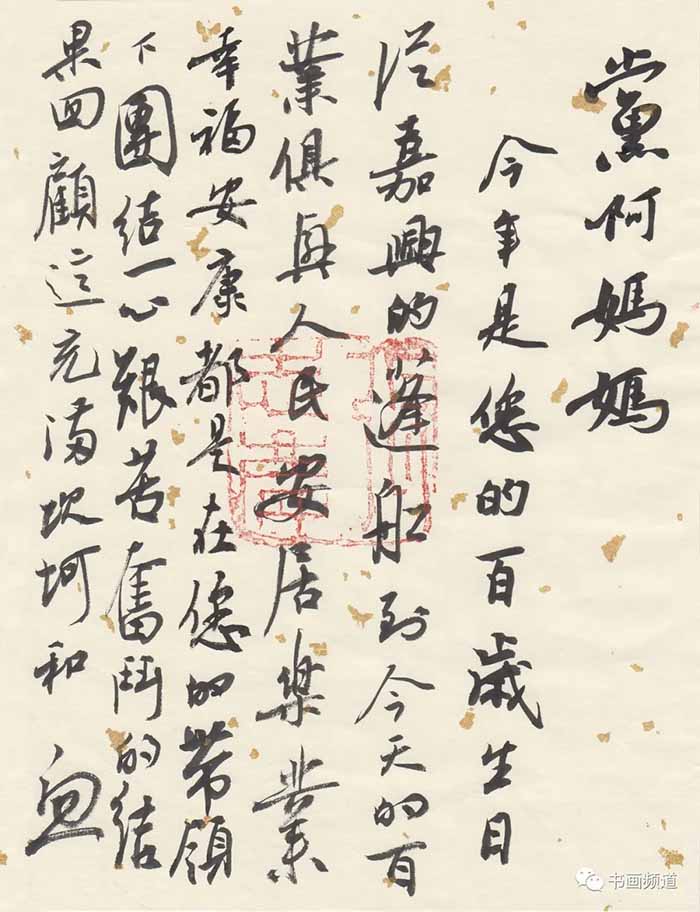 黨啊媽媽
今年是您的百歲生日
從嘉興的蓬船到今天的百
業俱興人民安居樂業
幸福安康都是在您的带領
下團结一心艱苦奮鬥的结
果回顧這充满坎坷和血
书画频道